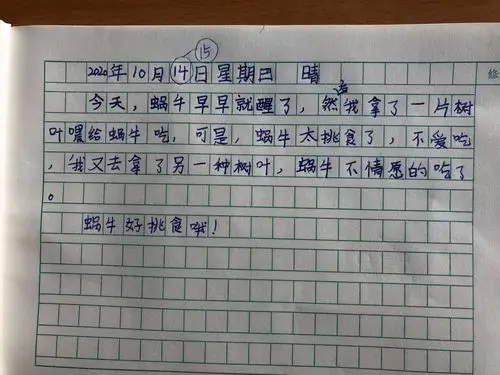 ⑮
2020年10月14日星期三 晴
今天,蜗牛早早就醒了,然后我拿了一片树
叶喂给蜗牛吃,可是,蜗牛太挑食了,不爱吃
,我又去拿了另一种树叶,蜗牛不情愿的吃了
。
蜗牛好挑食哦!